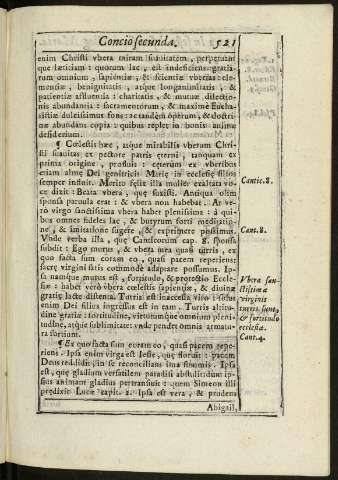 Concio secunda. 521
enim Christi vbera miram suauitatem, perpetuam
que lætitiam: quorum lac, est indeficiens gratia-
rum omnium, sapientiæ, & scientiæ vbertas: cle-
mentiæ, benignitatis, atque longanimitatis, &
patientiæ affluentia: charitatis, & mutuæ dilectio-
nis abundantia: sacramentorum, & maximè Eucha-
ristiæ dulcissimus fons: ac tandem operum, & doctri-
næ abundans copia quibus replet in bonis animæ
desiderium.
¶ Cœlestis hæc, atque mirabilis vberum Chri-
sti suauitas ex pectore patris eterni, tanquam ex
prima origine, profluit: ceterum ex vberibus
etiam almæ Dei genitricis Mariæ in ecclesiæ filios
semper influit. Merito felix illa mulier exaltata vo-
ce dixit: Beata vbera, quæ suxisti. Antiqua olim
sponsa paruula erat: & vbera non habebat. At ve-
ro virgo sanctissima vbera habet plenissima: à qui
bus omnes fideles lac, & butyrum forti meditatio-
ne, & imitatione sugere, & exprimere possimus.
Vnde verba illa, quæ Canticorum cap. 8. sponsa
subdit: Ego murus, & vbera mea quasi turris, ex
quo facta sum coram eo, quasi pacem reperiens:
sacræ virgini satis commodè adaptare possumus. Ip-
sa namque murus est, fortitudo, & protectio Eccle-
siæ: habet verò vbera cœlestis sapientiæ, & diuinæ
gratiæ lacte distenta. Turris est inaccessa viro: solus
enim Dei filius ingressus est in eam. Turris altitu-
dine gratiæ: fortitudine, virtutumque omnium pleni-
tudine, atque sublimitate: vnde pendet omnis armatu-
ra fortium.
¶ Ex quo facta sum coram eo, quasi pacem repe-
riens. Ipsa enim virga est Iesse, quæ floruit: pacem
Deus reddidit, in se reconcilians ima summis. Ipsa
est, quæ gladium versatilem paradisi abstulit: dum ip-
sius animam gladius pertransiuit: quem Simeon illi
prædixit Lucæ capit. 2. Ipsa est vera, & prudens
Abigail,
Cantic. 8.
Cant. 8.
Vbera san-
ctissimæ
virginis
turris sunt,
& fortitudo
ecclesiæ.
Cant. 4.